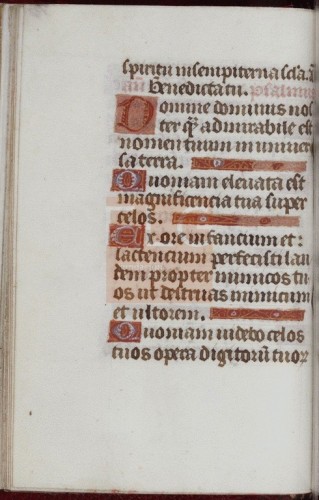 spiritu in sempiterna scła. a
añ Benedicta tu. psalmus
Domine dominus nos
ter q̃ admirabile est
nomen tuum in univer
sa terra.
Quoniam elevata est
magnificencia tua super
celos.
Ex ore infancium et:
lactencium perfecisti lau
dem propter inimicos tu
os ut destruas inimicum
et ultorem.
Quoniam videbo celos
tuos opera digitorũ tuoꝝ